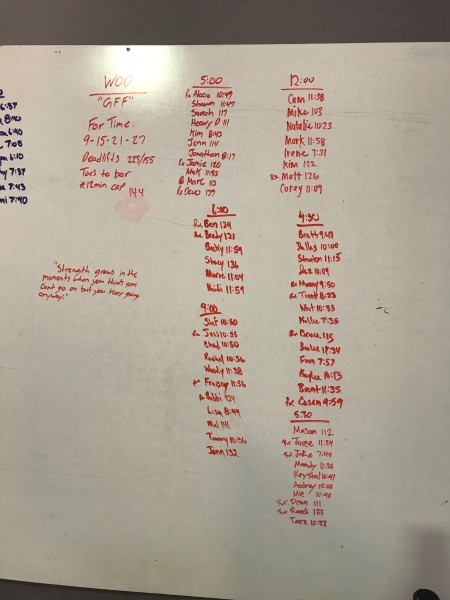 WOD
"GFF"
For Time:
9-15-21-27
Deadlifts 225/155
Toes to bar
*12min cap
144
"Strength grows in the
moments when you think you
can't go on but you keep going
anyway."
5:00
Rx Alecio 10:49
Shawn 11:47
Sarah 117
Henry D 111
Kim 8:43
Jenn 114
Jonathan 8:17
Rx Jamie 120
Matt 11:52
Rx Marc 112
Rx Devo 139
6:00
Rx Ben 124
Rx Brady 121
Becky 11:59
Stacy 136
Marie 11:04
Heidi 11:59
9:00
Stef 10:50
Rx Joss 10:25
Chad 10:50
Rachel 10:56
Woody 11:38
Rx Fraser 11:56
Rx Robbi 124
Lisa 8:49
Mel 141
Tammy 10:36
Jenn 132
12:00
Cam 11:58
Mike 103
Natalie 10:23
Mark 11:58
Irene 7:31
Kim 122
Rx Matt 126
Corey 11:09
4:30
Brett 9:48
Dallas 10:00
Straton 11:15
Dave 11:09
Rx Manny 9:50
Rx Trent 8:23
Whit 10:33
Kylie 7:35
Rx Bruce 113
Fran 7:57
Kaylee 10:13
Brent 11:35
Rx Casen 9:59
5:30
Mason 112
Rx Turee 11:34
Rx Jake 7:44
Mandy 11:30
Krystal 10:41
Audrey 12:00
Mic 10:40
Rx Dean 111
Rx Randi 133
Tara 10:58
6:37
8:40
6:40
7:08
6:10
7:37
7:43
7:40